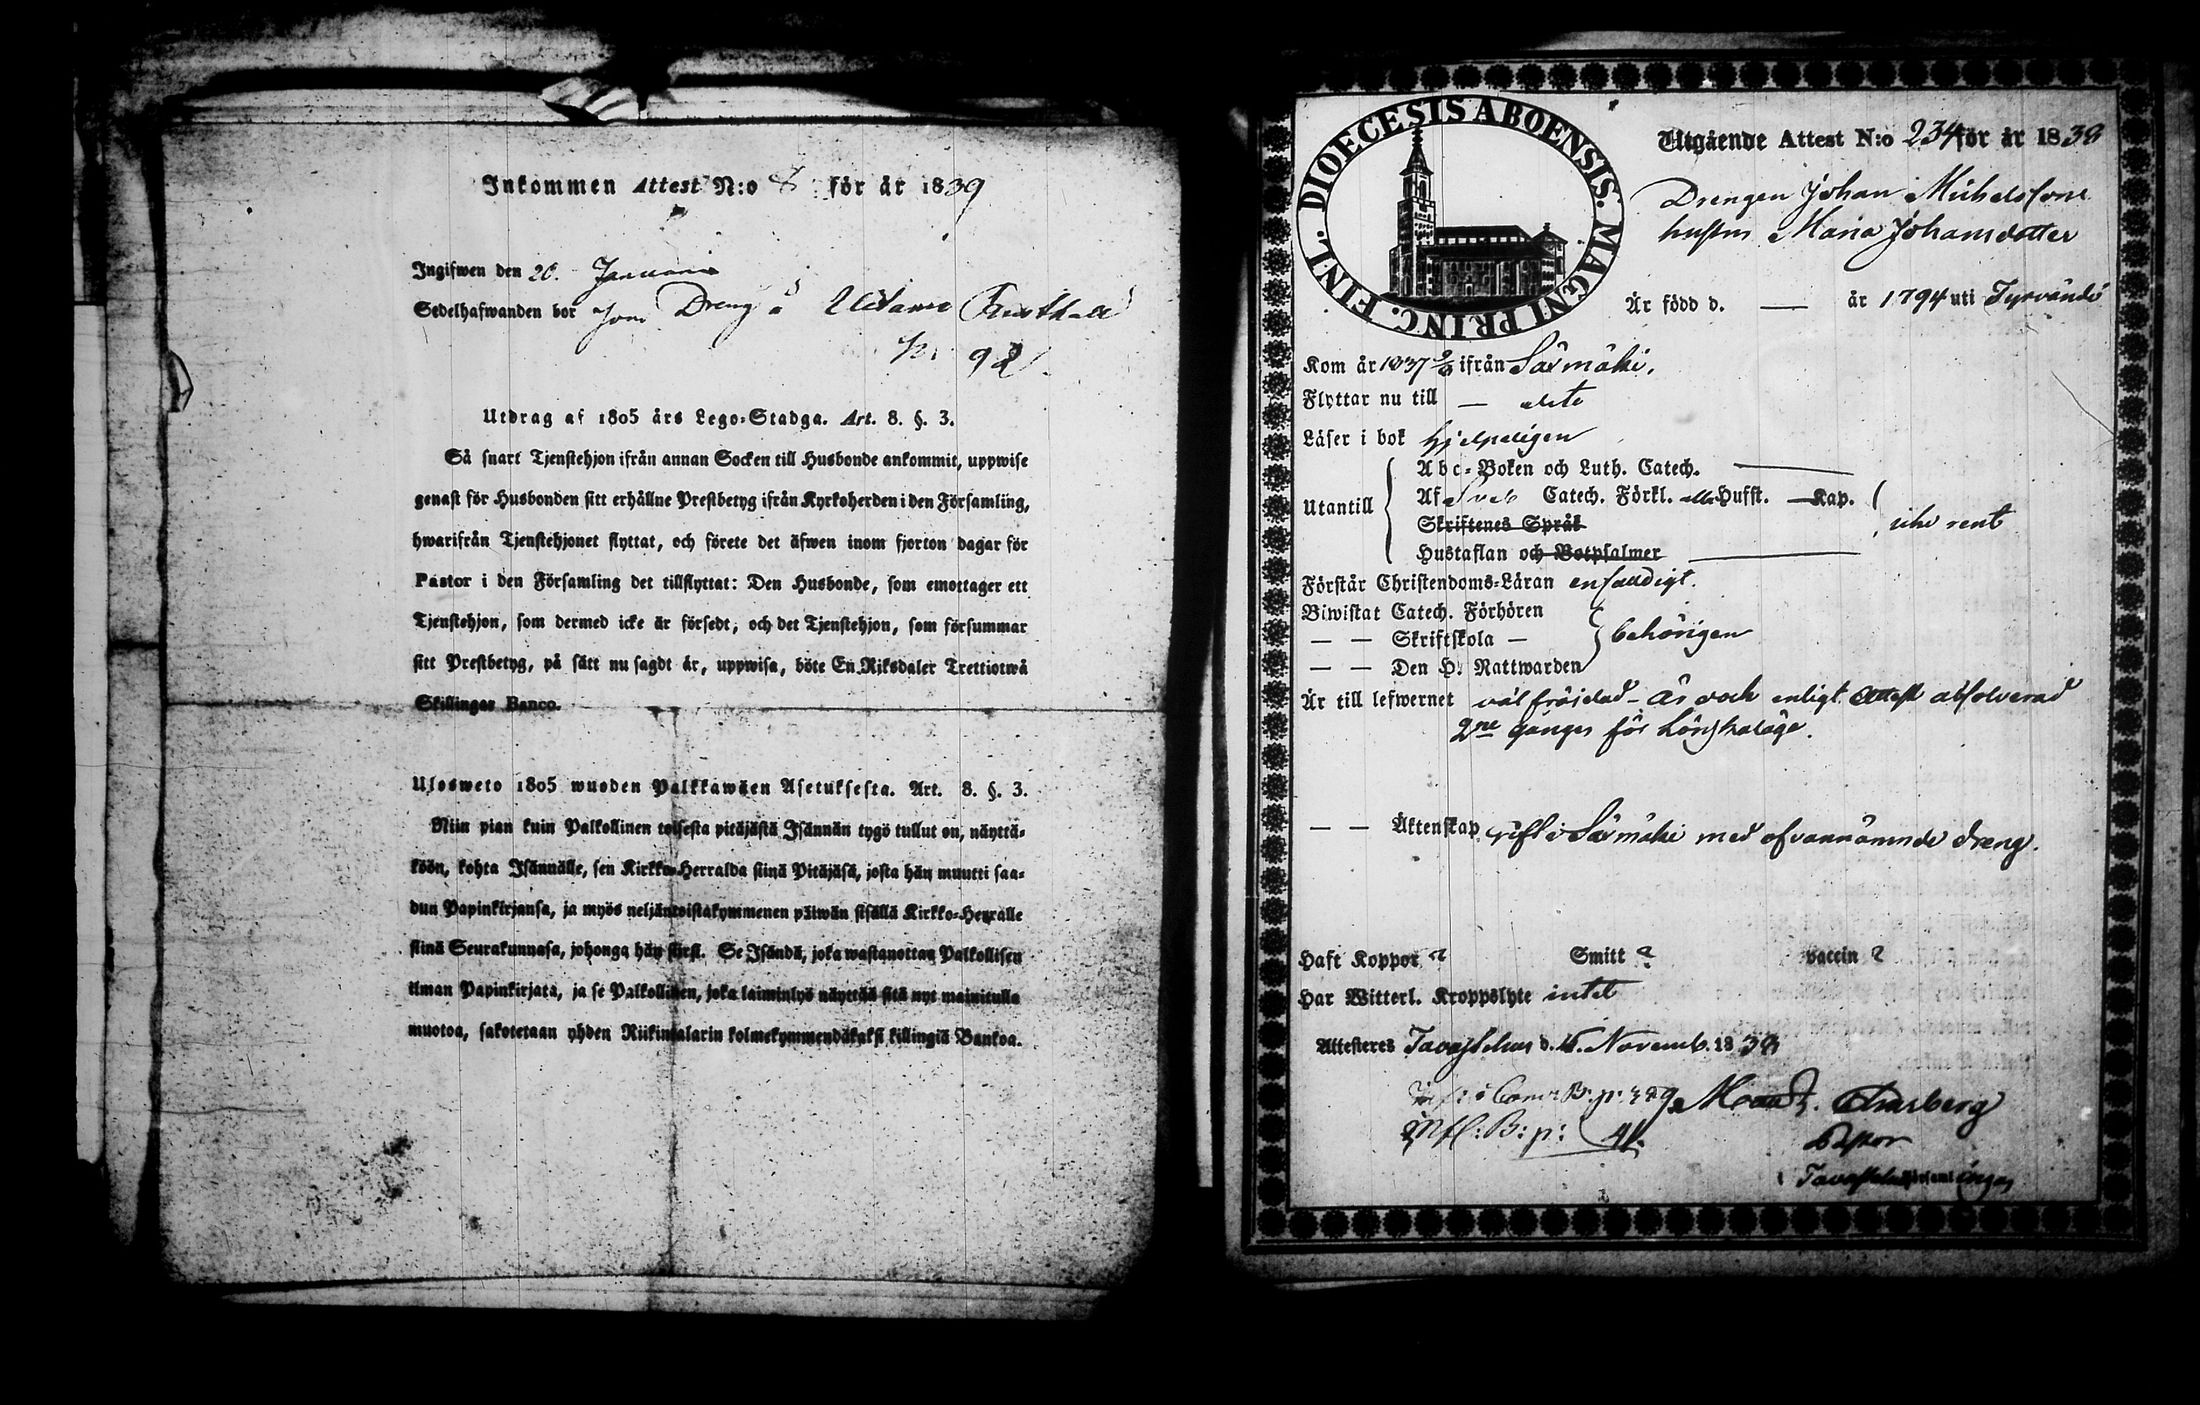 Inkommen Attest N:o 8 för år 1839
Ingifwen den 20. Januarii
Sedelhafwanden bor som Dreng å
N: 92
Utdrag af 1805 års Lego-Stadga. Art. 8. §. 3.
Så snart Tjenstehjon ifrån annan Socken till Husbonde ankommit, uppwise
genast för Husbonden sitt erhållne Prestbetyg ifrån Kyrkoherden i den Församling,
hwarifrån Tjenstehjonet flyttat, och förete det äfwen inom fjorton dagar för
Pastor i den Församling det tillflyttat: Den Husbonde, som emottager ett
Tjenstehjon, som dermed icke är försedt, och det Tjenstehjon, som försummar
sitt Prestbetyg, på sätt nu sagdt är, uppwisa, böte En Riksdaler Trettiotwå
Skillingar Banco.
Ulosweto 1805 wuoden Palkkawäen Asetuksesta. Art. 8. §. 3.
Niin pian kuin Palkollinen toisesta pitäjästä Isännän tygö tullut on, näyttä-
köön, kohta Isännälle, sen Kirkko-Herralda siinä Pitäjäsä, josta hän muutti saa-
dun Papinkirjansa, ja myös neljäntoistakymmenen päiwän sisällä Kirkko-Herralle
siinä Seurakunnasa, johonga hän siirsi. Se Isändä, joka wastanottaa Palkollisen
ilman Papinkirjata, ja se Palkollinen, joka laiminlyö näyttää sitä nyt mainitulla
muotoa, sakotetaan yhden Riikintalarin kolmekymmendäkaksi killingiä Bankoa.
DIOECESIS ABOENSIS. MAGNI PRINC. FINL.
Utgående Attest N:o 234 för år 1838
Drengen Johan Michelssons
hustru Maria Johansdotter
Är född d. — år 1794 uti Tyrvändö
Kom år 1837 ifrån Sär mäki,
Flyttar nu till — dito
Läser i bok hjelpeligen
Utantill
Abc-Boken och Luth. Catech. —
Af Sveb Catech. Förkl. alla Hufst. — Kap.
Skriftenes Språk
Hustaflan och Botpsalmer —
icke rent
Förstår Christendoms-Läran enfaldigt.
Biwistat Catech. Förhören
— — Skriftskola —
— — Den H. Nattwarden
behörigen
Är till lefwernet väl fräjdad – Är dock enligt Attest absolverad
2ne gånger för Lönskaläge.
— — Äktenskap gift i Särmäki med ofvannämnde dreng.
Haft Koppor ? Smitt ? vaccin ?
Har Witterl. Kroppslyte intet
Attesteres Tavastehus d. 15 Novemb. 1838
Infl: B: p: 41.
Pastor